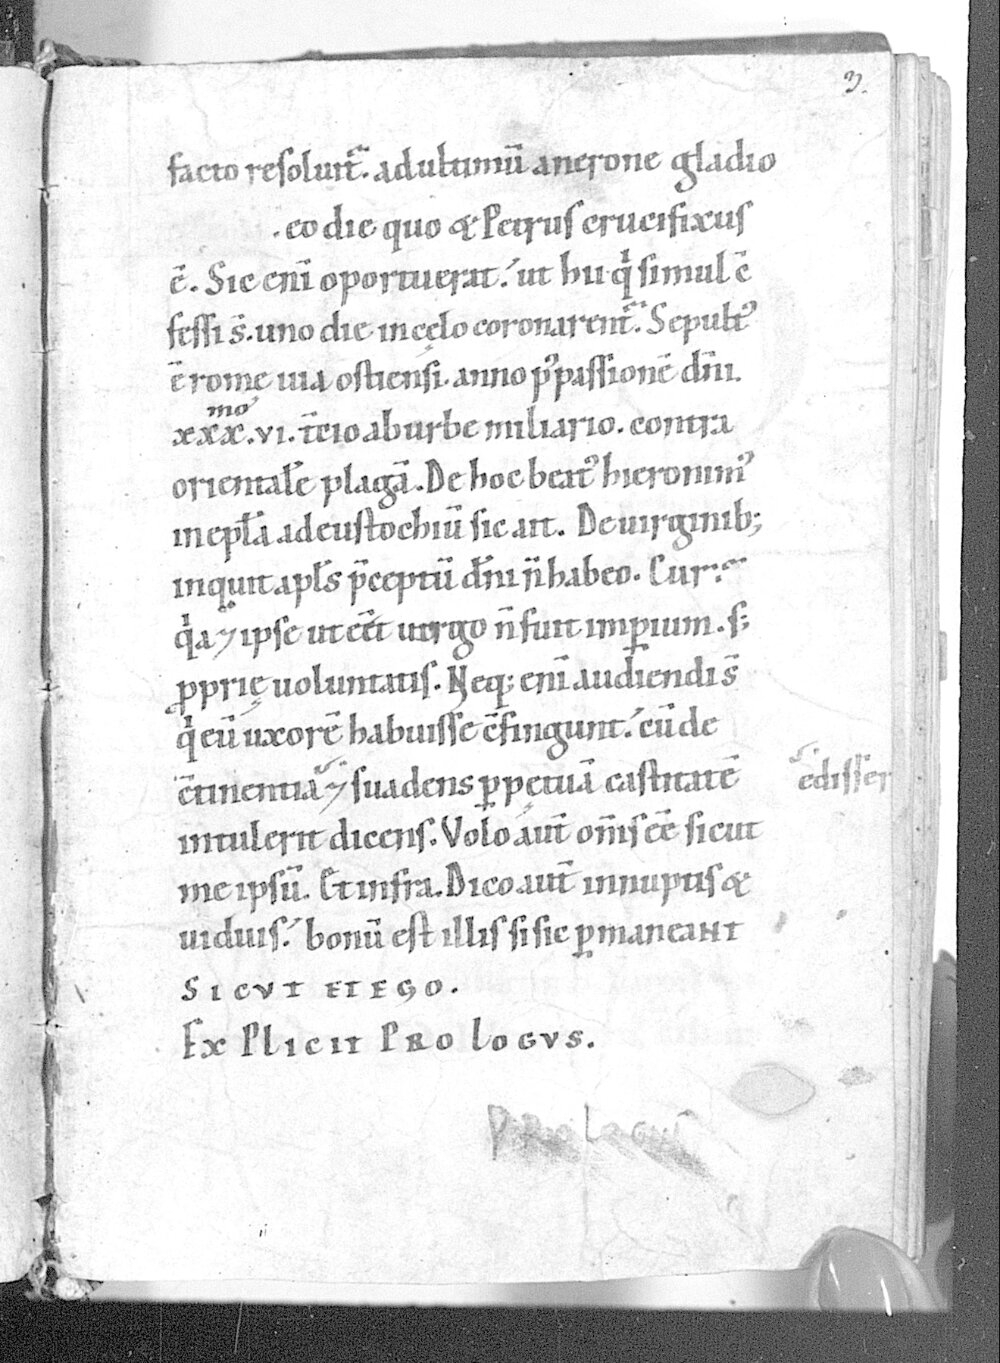 3.
facto resoluit᷑. ad ultimū a nerone gladio
. eo die quo & Petrus crucifixus
ē. Sic enī oportuerat.' ut hii q̍ simul ↄ̄
fessi s̄. uno die in cęlo coronarent᷑. Sepult᾽
ē rome uia ostiensi. anno p᾽ passionē dn̄i.
mo
xxx.vi. t̄cio ab urbe miliario. contra
orientalē plagā. De hoc beat᾽ hieronim᾽
in ep̄la ad eustochiū sic ait. De uirginib;
inquit apl̄s p̄ceptū dn̄i n̄ habeo. Cur.
q̍a ⁊ ipse ut eēt uirgo n̄ fuit imꝑium. s;
ꝓprię uoluntatis. Neq; enī audiendi s̄
q̍ eū uxorē habuisse ↄ̄fingunt.' cū de
ↄ̄tinentia ⁊ suadens ꝑpetuā castitatē
edisser
intulerit dicens. Volo aut̄ om̄s eē sicut
me ipsū. Et infra. Dico aut̄ innuptis &
uiduis.' bonū est illis si sic ꝑmaneant
SICVT ET EGO.
EXPLICIT PROLOGVS.
Prologus